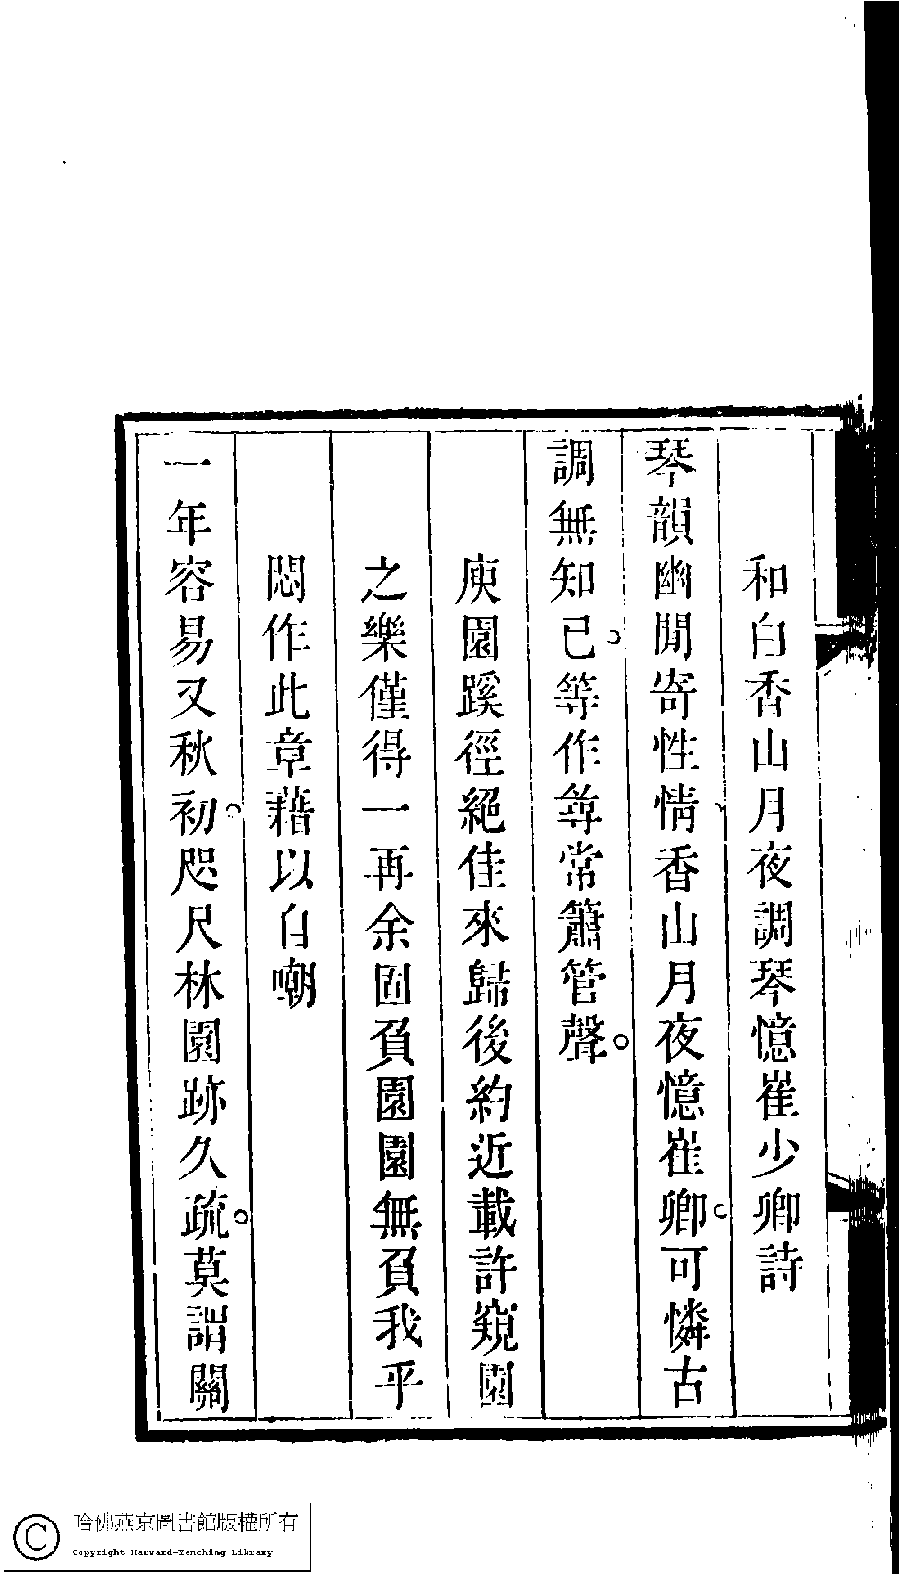 和白香山月夜調琴憶崔少卿詩
琴韻幽閒寄性情香山月夜憶崔卿。可憐古
調無知已。等作尋常簫管聲。
庾園蹊徑絕佳來歸後約近載許窺園
之樂僅得一再余固負園園無負我乎
悶作此章藉以自嘲
一年容易又秋初。咫尺林園跡久疏。莫謂關
哈佛燕京圖書館版權所有
Copyright Harvard-Yenching Library